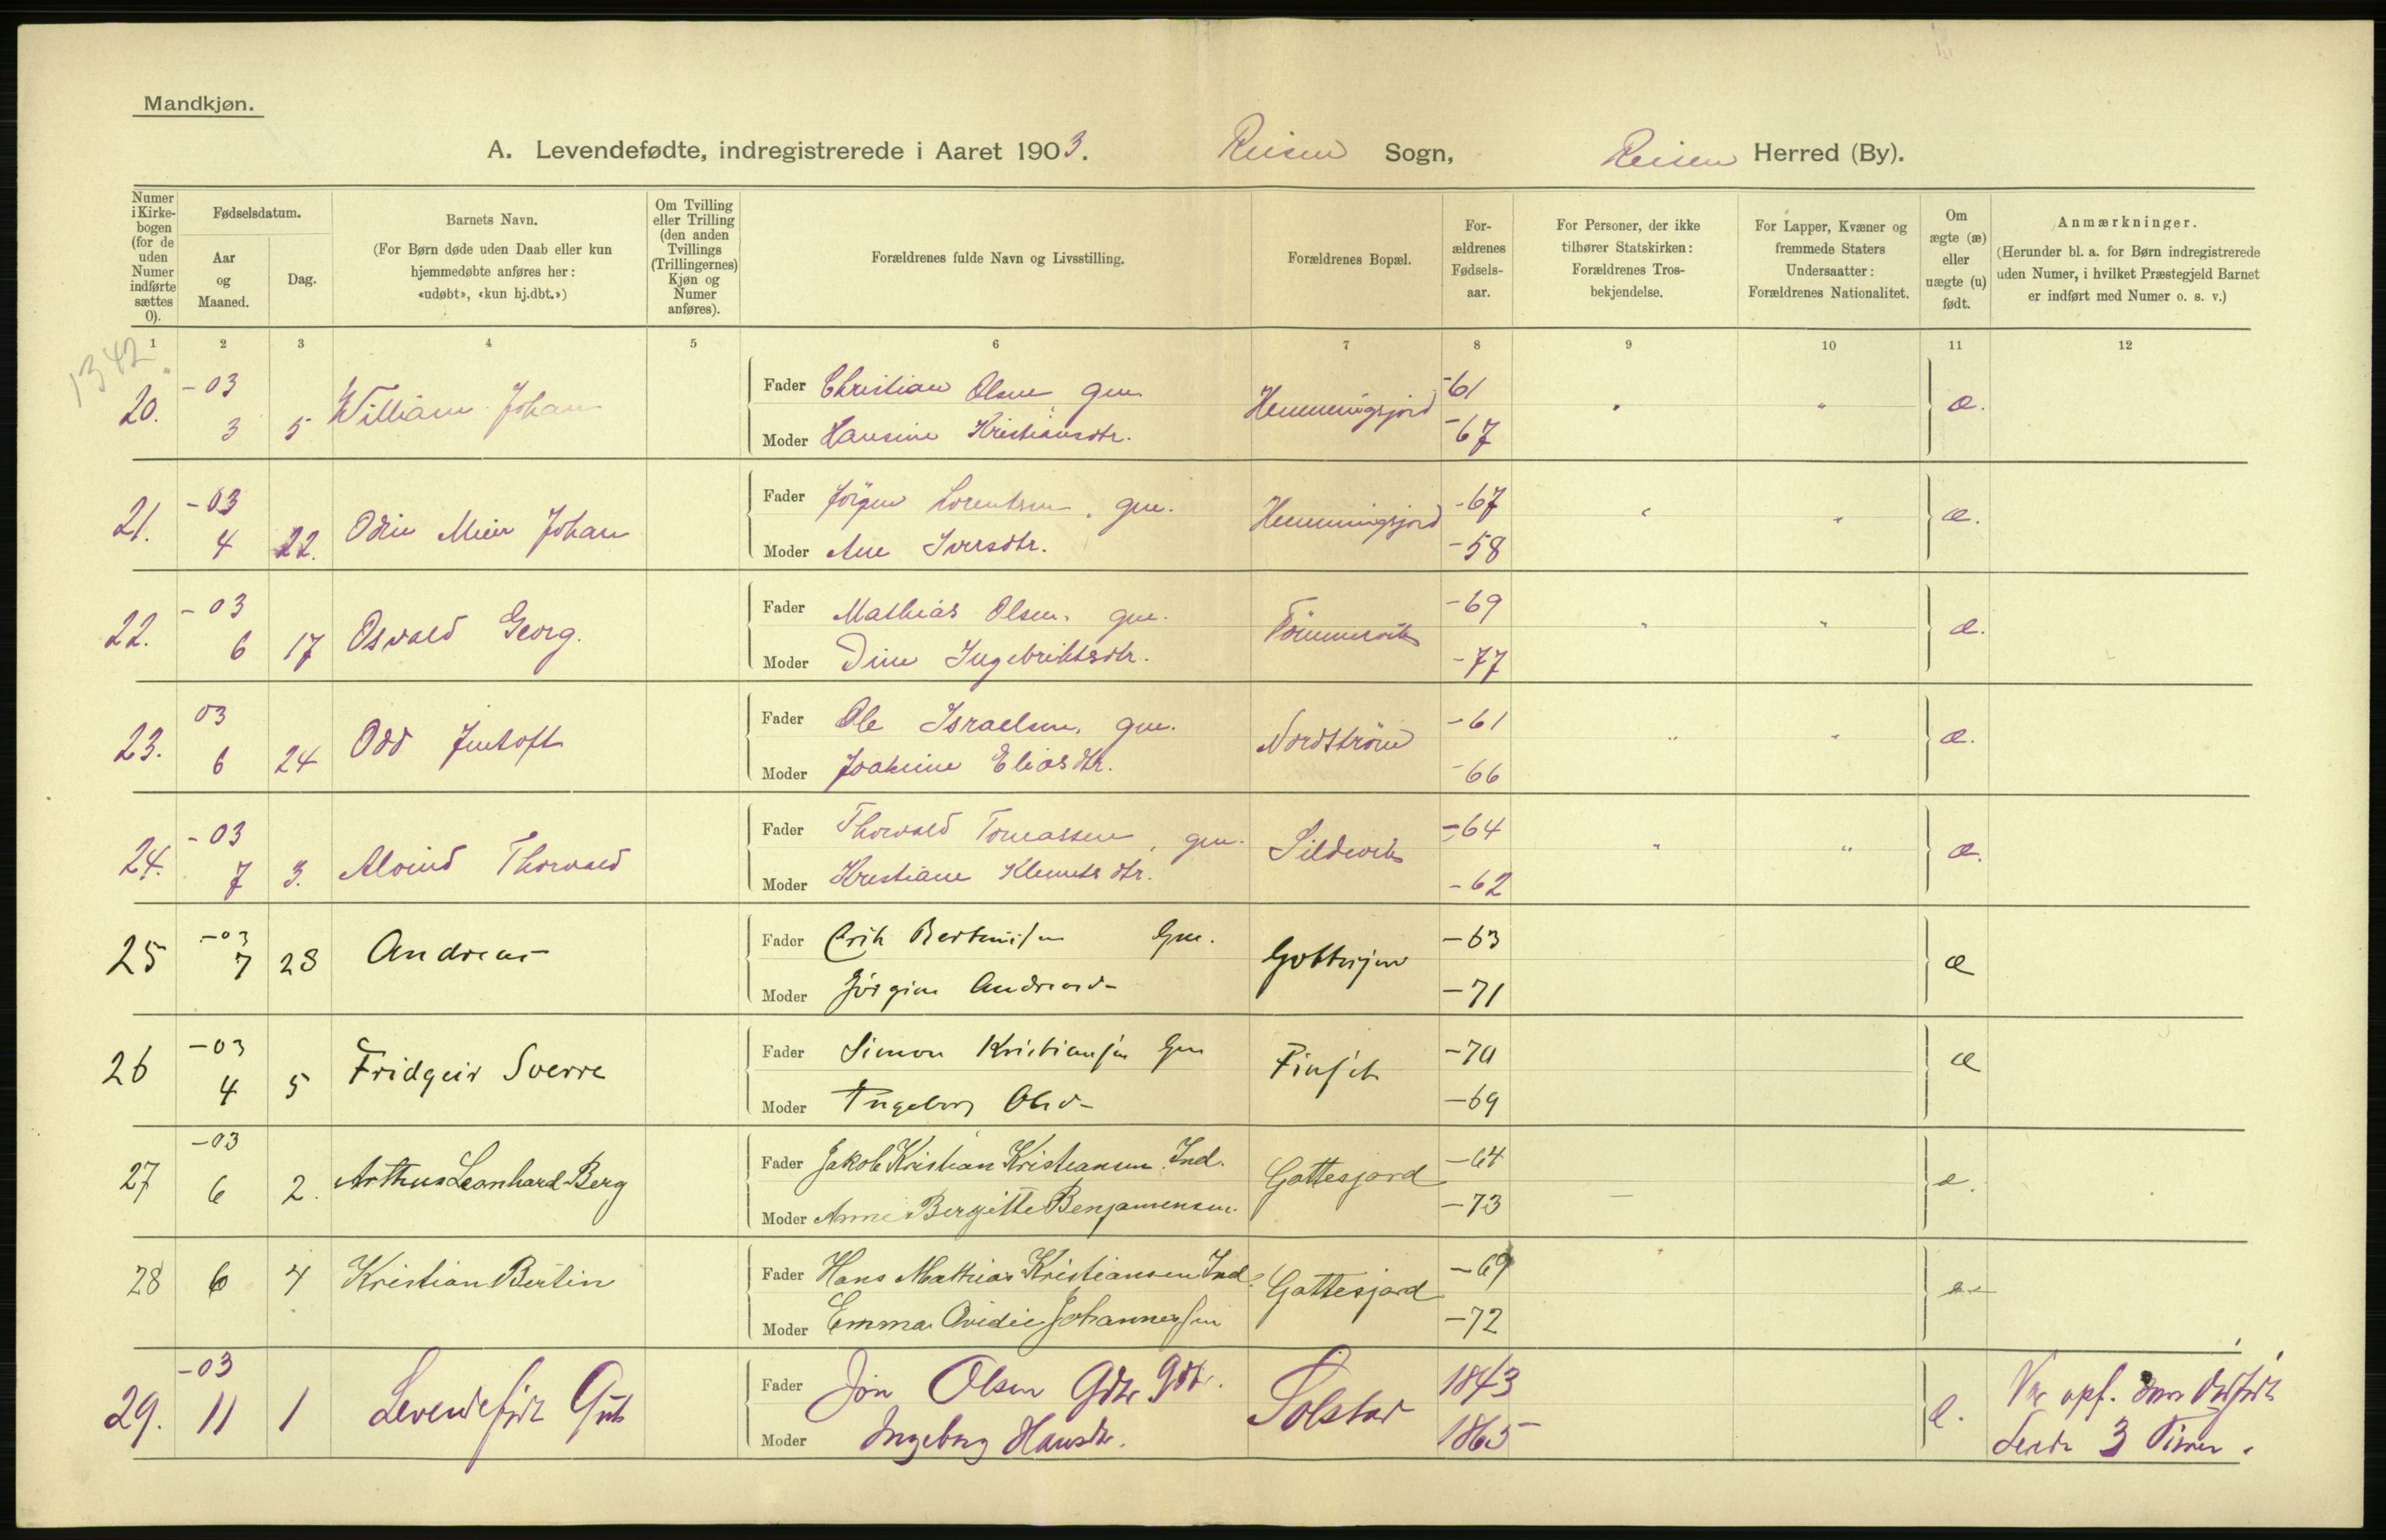 Mandkjøn.
A. Levendefødte, indregistrerede i Aaret 1903. Reisen Sogn, Reisen Herred (By).
Numer i Kirkebogen (for de uden Numer indførte sættes 0).
Fødselsdatum.
Aar og Maaned.
Dag.
Barnets Navn.
(For Børn døde uden Daab eller kun hjemmedøbte anføres her: «udøbt», «kun hj.dbt.»)
Om Tvilling eller Trilling (den anden Tvillings (Trillingernes) Kjøn og Numer anføres).
Forældrenes fulde Navn og Livsstilling.
Forældrenes Bopæl.
Forældrenes Fødselsaar.
For Personer, der ikke tilhører Statskirken: Forældrenes Trosbekjendelse.
For Lapper, Kvæner og fremmede Staters Undersaatter: Forældrenes Nationalitet.
Om ægte (æ) eller uægte (u) født.
Anmærkninger.
(Herunder bl. a. for Børn indregistrerede uden Numer, i hvilket Præstegjeld Barnet er indført med Numer o. s. v.)
1 2 3 4 5 6 7 8 9 10 11 12
1342
20. -03 3 5 William Johan
Fader Christian Olsen, gm. Hemmingsjord -61 æ.
Moder Hansine Kristiansdtr. -67
21. -03 4 22. Odin Meier Johan
Fader Jörgen Lorentsen, gm. Hemmingsjord -67 æ.
Moder Ane Iversdtr. -58
22. -03 6 17 Osvald Georg.
Fader Mathias Olsen, gm. Tömmervik -69 æ.
Moder Dine Ingebriktsdtr. -77
23. 03 6 24 Odd Jentoft
Fader Ole Israelsen, gm. Nordström -61 æ.
Moder Joakime Eliasdtr. -66
24. -03 7 3. Alvind Thorvald
Fader Thorvald Tomassen, gm. Sildvik -64 æ.
Moder Kristiane Klemetsdtr. -62
25 -03 7 28 Andreas
Fader Erik Bertinisen Gm. -63 æ
Moder Jørgine Andreasd- -71
26 -03 4 5 Fridgeir Sverre
Fader Simon Kristiansen Gm -70 æ
Moder Ingeborg Olsd- -69
27 -03 6 2. Arthur Leonhard Berg
Fader Jakob Kristian Kristiansen. Ind. Gottesjord -64 æ.
Moder Anne Bergitte Benjaminsen. -73
28 6 4 Kristian Bertin
Fader Hans Mathias Kristiansen Ind. Gottesjord -69
Moder Emma Ovidie Johannessen -72
29. -03 11 1 Levendefødt Gut
Fader Jon Olsen Gdbr. Solstad 1843
Moder Ingeborg Hansdtr. 1865
Var opf. som dødfødt
Levde 3 Timer.